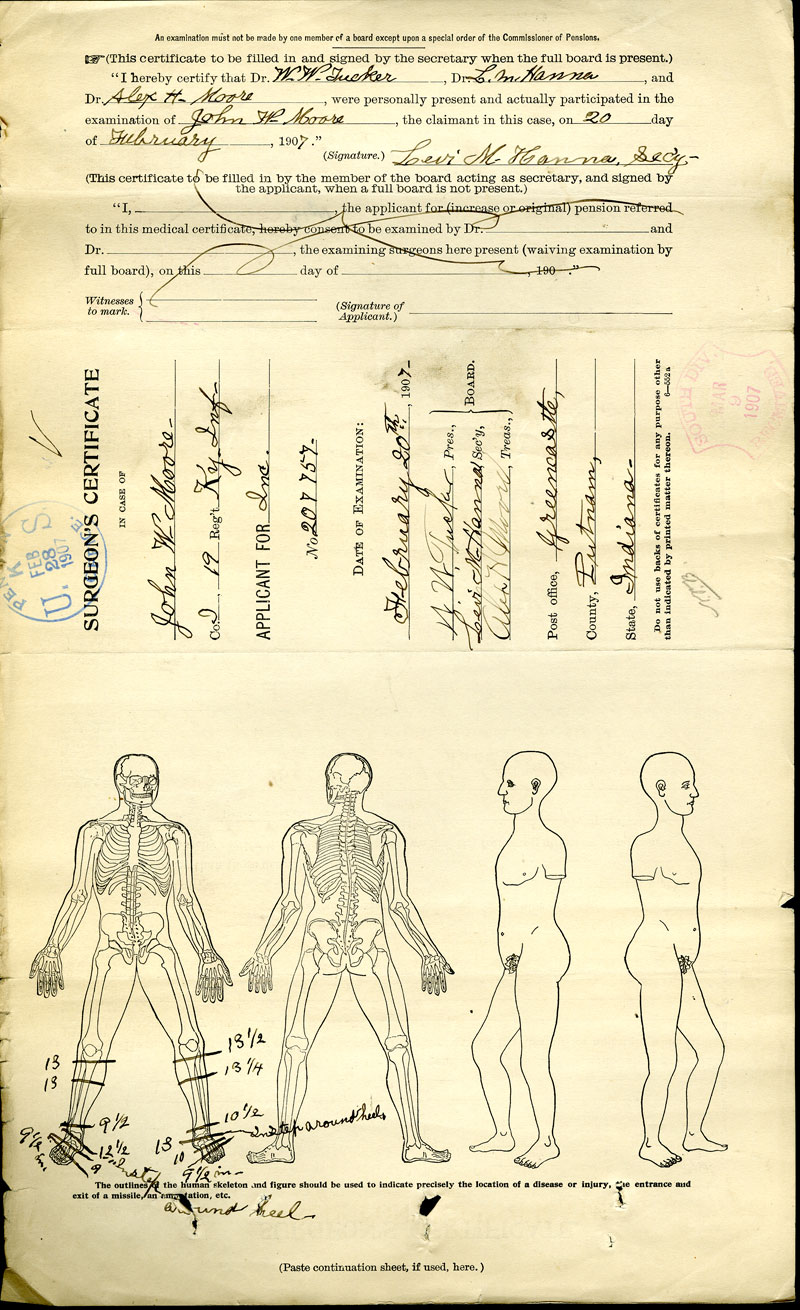 An examination must not be made by one member of a board except upon a special order of the Commissioner of Pensions.
☞(This certificate to be filled in and signed by the secretary when the full board is present.)
"I hereby certify that Dr. W. W. Tucker, Dr. L. M. Hanna, and
Dr. Alex H. Moore, were personally present and actually participated in the
examination of John W. Moore, the claimant in this case, on 20 day
of February, 1907."
(Signature.) Levi M. Hanna, Sec'y-
(This certificate to be filled in by the member of the board acting as secretary, and signed by
the applicant, when a full board is not present.)
"I, , the applicant for (increase or original) pension referred
to in this medical certificate, hereby consent to be examined by Dr. and
Dr. , the examining surgeons here present (waiving examination by
full board), on this day of , 190 ."
Witnesses
to mark.
(Signature of
Applicant.)
SURGEON'S CERTIFICATE
IN CASE OF
John W. Moore-
Co. I, 19 Reg't Ky. Inf-
APPLICANT FOR Inc.
No. 207757-
DATE OF EXAMINATION:
February 20th, 1907-
W. W. Tucker, Pres.,
Levi M. Hanna, Sec'y,
Alex H. Moore, Treas.,
BOARD.
Post office, Greencastle,
County, Putnam,
State, Indiana-
Do not use backs of certificates for any purpose other
than indicated by printed matter thereon. 6—552a
U. S.
FEB
28
1907
SOUTH DIV.
MAR
9
1907
13
13
13 1/2
13 1/4
9 1/2
12 1/2
9
10 1/2
instep around heel
13
10
9 1/2 in-
around heel-
The outlines of the human skeleton and figure should be used to indicate precisely the location of a disease or injury, the entrance and
exit of a missile, an amputation, etc.
(Paste continuation sheet, if used, here.)